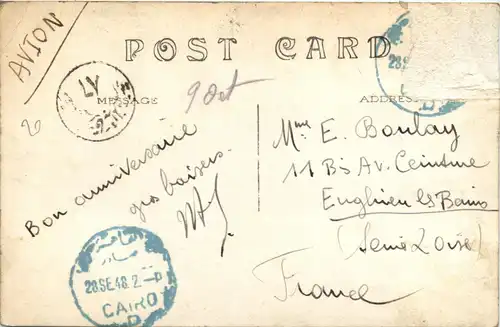 AVION
POST CARD
MESSAGE
ADDRESS
LY
9 Oct
28 SE
Bon anniversaire
gros baisers.
Mme E. Boulay
11 Bis Av. Ceinture
Enghien les Bains
(Seine & Oise)
France
28 SE 48. 2 - P
CAIRO
D